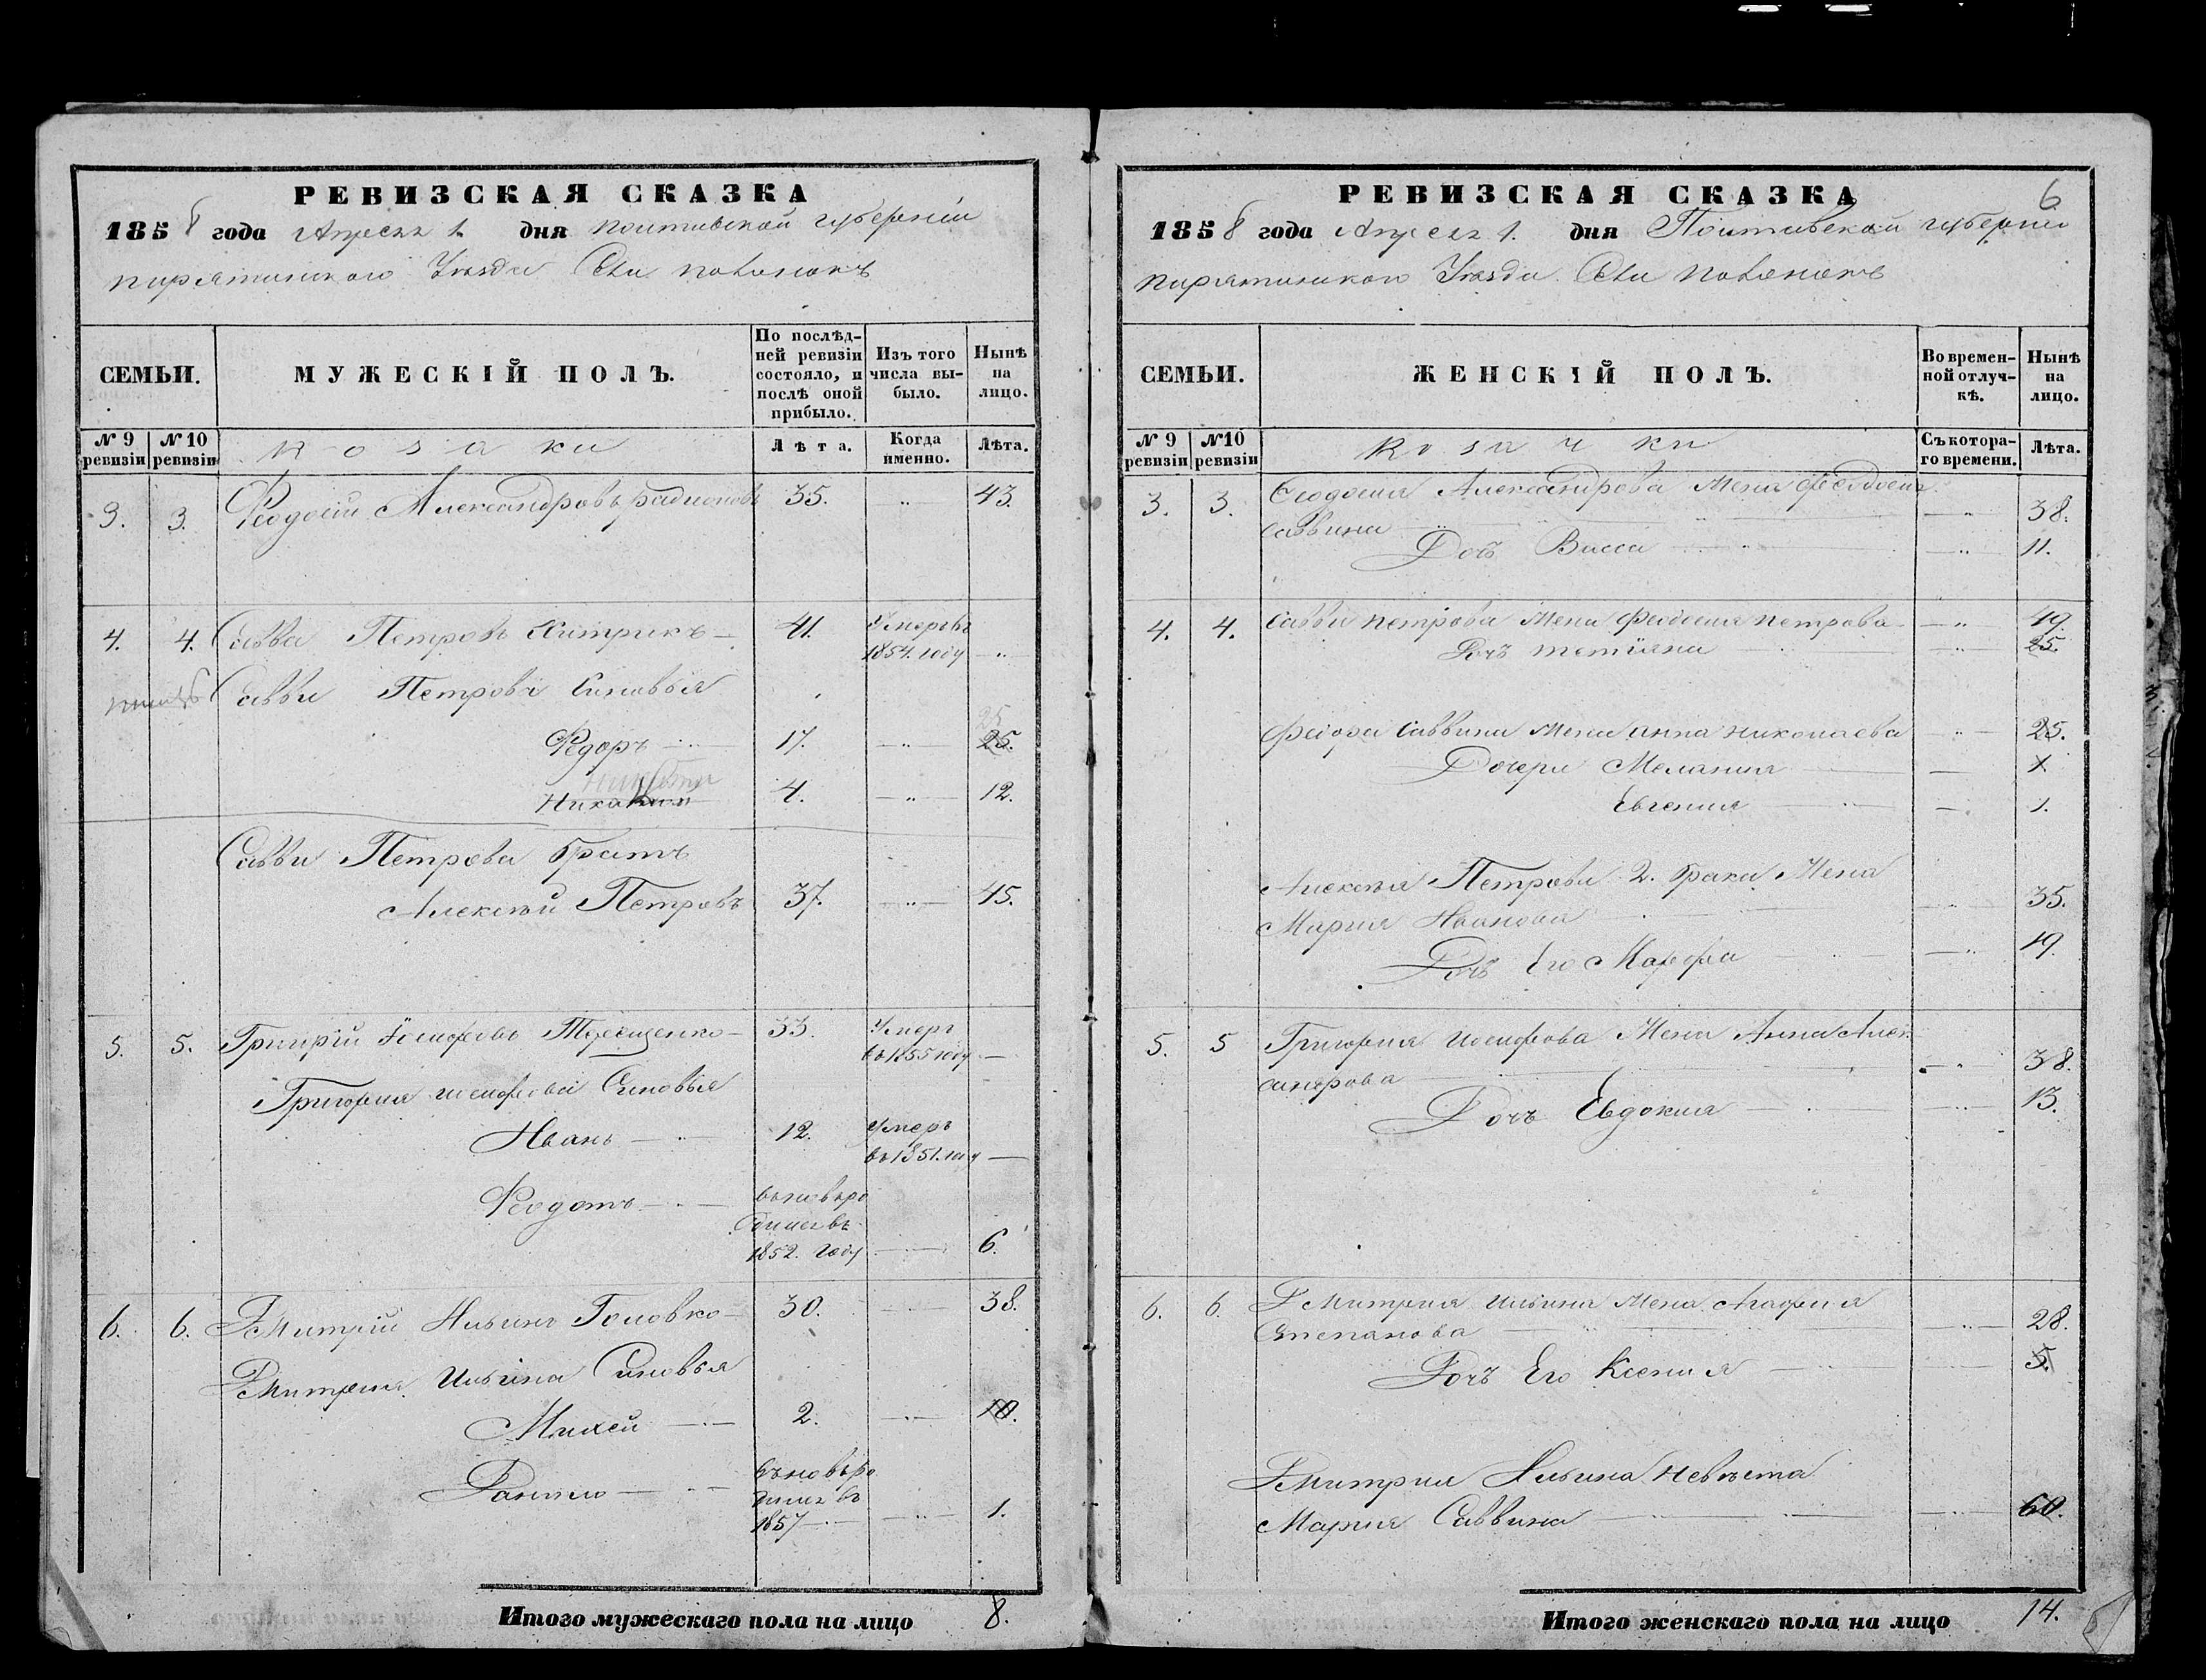 РЕВИЗСКАЯ СКАЗКА
1858 года Апреля 1. дня Полтавской губерніи
Пирятинского Уезда Села
СЕМЬИ.
МУЖЕСКІЙ ПОЛЪ.
По послѣд-
ней ревизіи
состояло, и
послѣ оной
прибыло.
Изъ того
числа вы-
было.
Нынѣ
на
лицо.
№ 9
ревизіи
№ 10
ревизіи
Козаки
Лѣта.
Когда
именно.
Лѣта.
3. 3. Феодосій Александровъ 35. „ 43.
4. 4. Савва Петровъ Хитрикъ 41. Умеръ въ
1854. году „
Саввы Петрова Сыновья
Федоръ 17. „ 25 25.
Никита
4. „ 12.
Саввы Петрова братъ
Алексѣй Петровъ 37. „ 45.
5. 5. Григорій Іосифовъ Терещенко 33. Умеръ
въ 1855 году
Григорія Иосифова Сыновья
Иванъ 12. Умеръ
въ 1851. году
Феодотъ вновь ро
дился въ
1852. году 6.
6. 6. Дмитрій Ильинъ Головко 30. 38.
Дмитрия Ильина Сыновья
Михей 2. 10.
Данило вновь ро
дился въ
1857 „ 1.
Итого мужескаго пола на лицо 8.
РЕВИЗСКАЯ СКАЗКА 6
1858 года Апреля 1. дня Полтавской губерніи
Пирятинского Уезда Села
СЕМЬИ.
ЖЕНСКІЙ ПОЛЪ.
Во времен-
ной отлуч-
кѣ.
Нынѣ
на
лицо.
№ 9
ревизіи
№10
ревизіи
Козачки
Съ котора-
го времени.
Лѣта.
3. 3. Феодосия Александрова Жена Феодосия
Саввина „ 38.
Дочь Васса „ 11.
4. 4. Саввы Петрова Жена Федосия Петрова „ 49.
Дочь Тетіяна „ 25.
Федора Саввина Жена Анна Николаева „ 25.
Дочери Мелания 1
Евгения 1.
Алексѣя Петрова 2. брака Жена
Мария Иванова „ 35.
Дочь Его Марфа „ 19.
5. 5 Григория Иосифова Жена Анна Алек
сандрова „ 38.
Дочь Евдокия 13.
6. 6 Дмитрия Ильина Жена Агафия
Степанова „ 28.
Дочь Его Ксения 5.
Дмитрия Ильина Невѣста
Мария Саввина 60.
Итого женскаго пола на лицо 14.